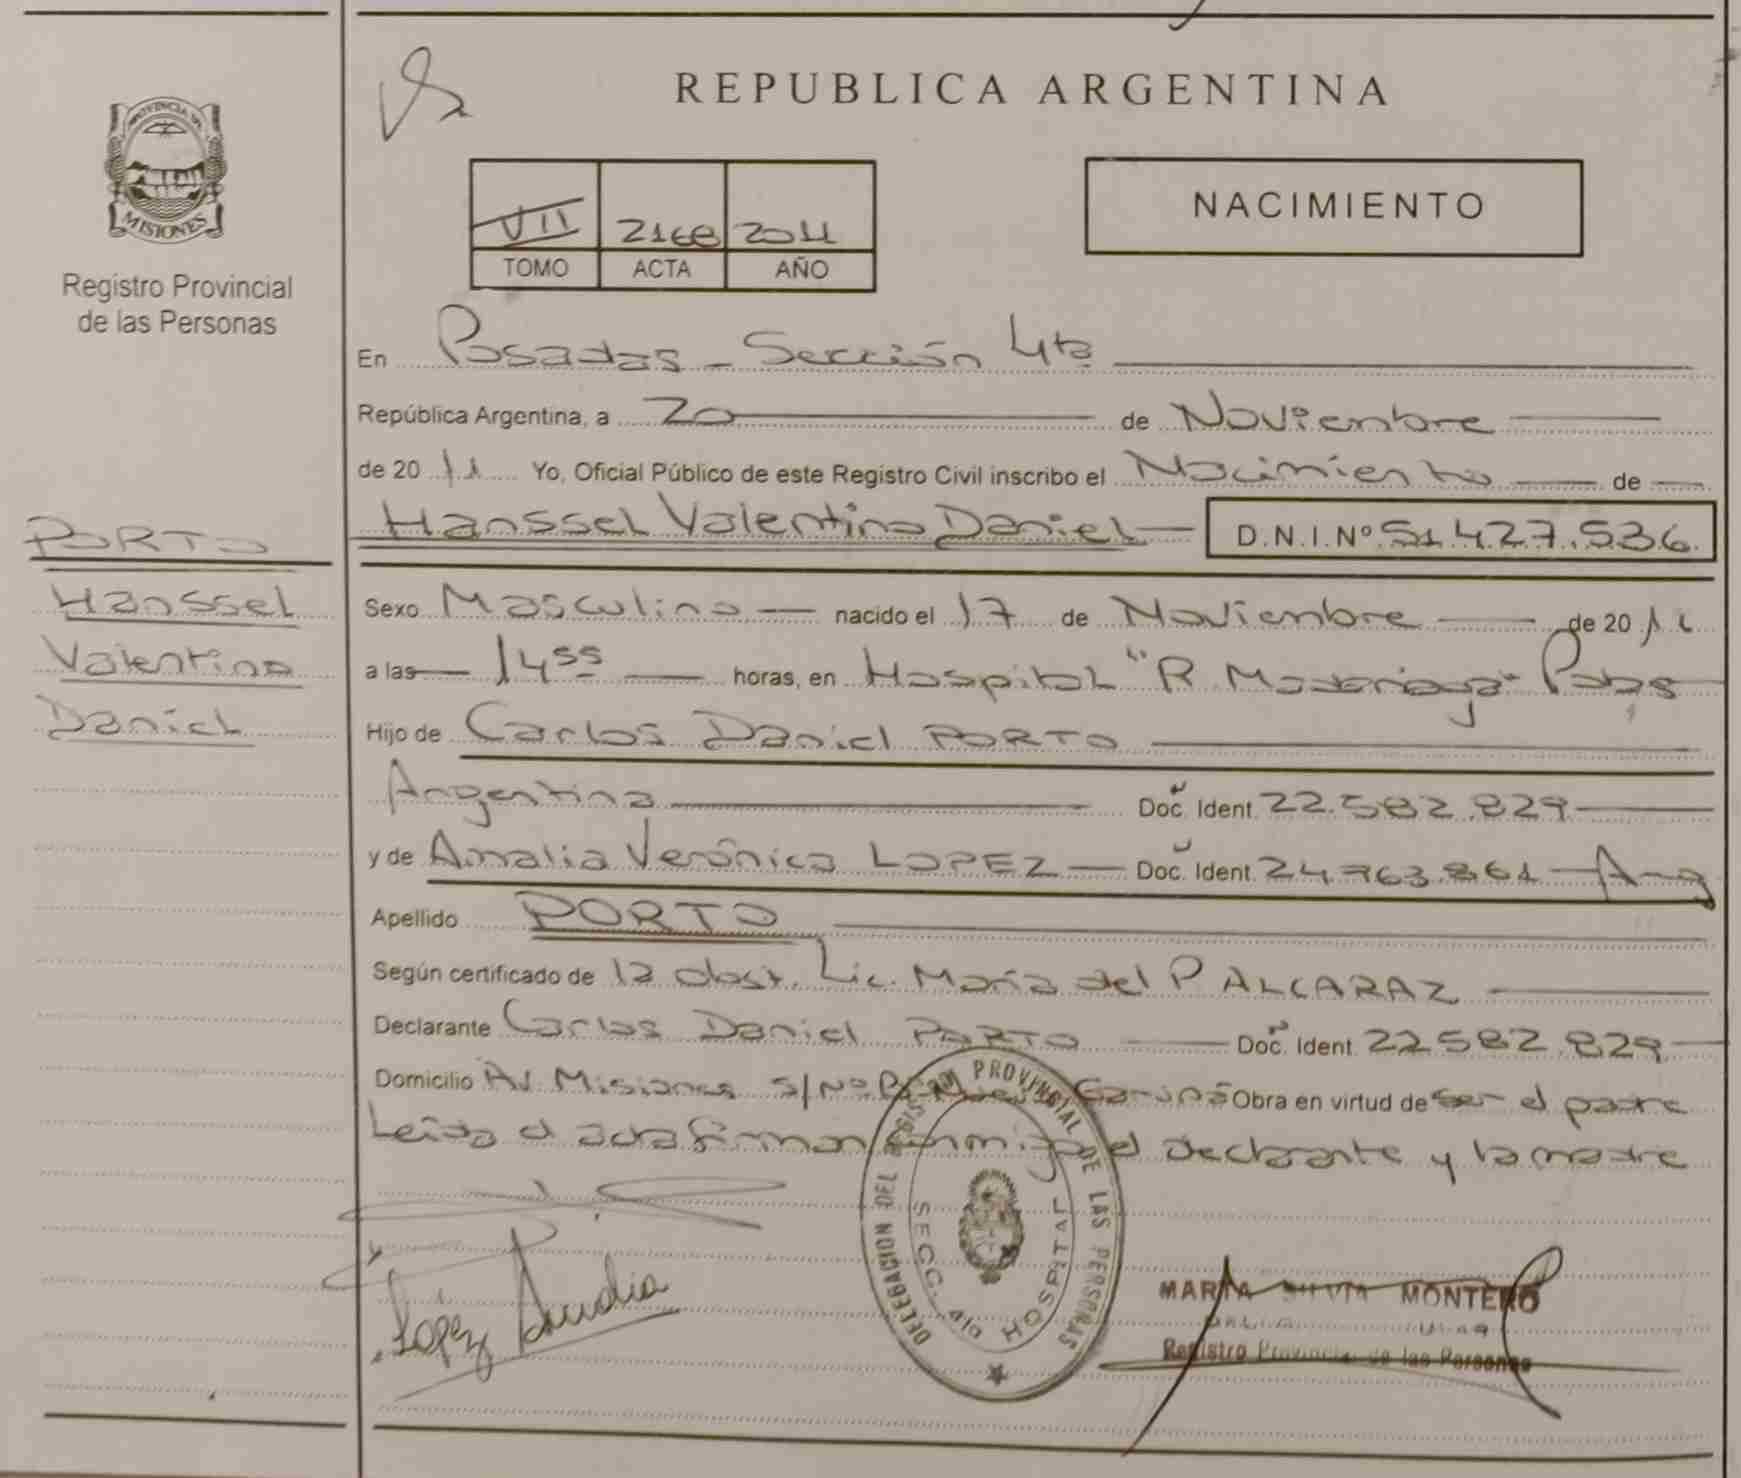 REPUBLICA ARGENTINA
PROVINCIA DE
MISIONES
Registro Provincial
de las Personas
VII 2168 2011
TOMO ACTA AÑO
NACIMIENTO
En Posadas - Sección 4ta
República Argentina, a 20 de Noviembre
de 2011 Yo, Oficial Público de este Registro Civil inscribo el Nacimiento de
Hanssel Valentino Daniel D.N.I.Nº 51.427.536
PORTO
Hanssel
Valentino
Daniel
Sexo Masculino nacido el 17 de Noviembre de 2011
a las 14 55 horas, en Hospital "R Madariaga" Pdas
Hijo de Carlos Daniel PORTO
Argentino Doc. Ident. 22.582.829
y de Amalia Verónica LOPEZ Doc. Ident. 24.763.861 Arg
Apellido PORTO
Según certificado de la obst. Lic. María del P ALCARAZ
Declarante Carlos Daniel PORTO Doc. Ident. 22582.829
Domicilio Av. Misiones s/Nº Garupá Obra en virtud de ser el padre
Leída el acta firman conmigo el declarante y la madre
DELEGACION DEL REGISTRO PROVINCIAL DE LAS PERSONAS
SECC. 4ta HOSPITAL
López
MARIA SILVIA MONTERO
Registro Provincial de las Personas